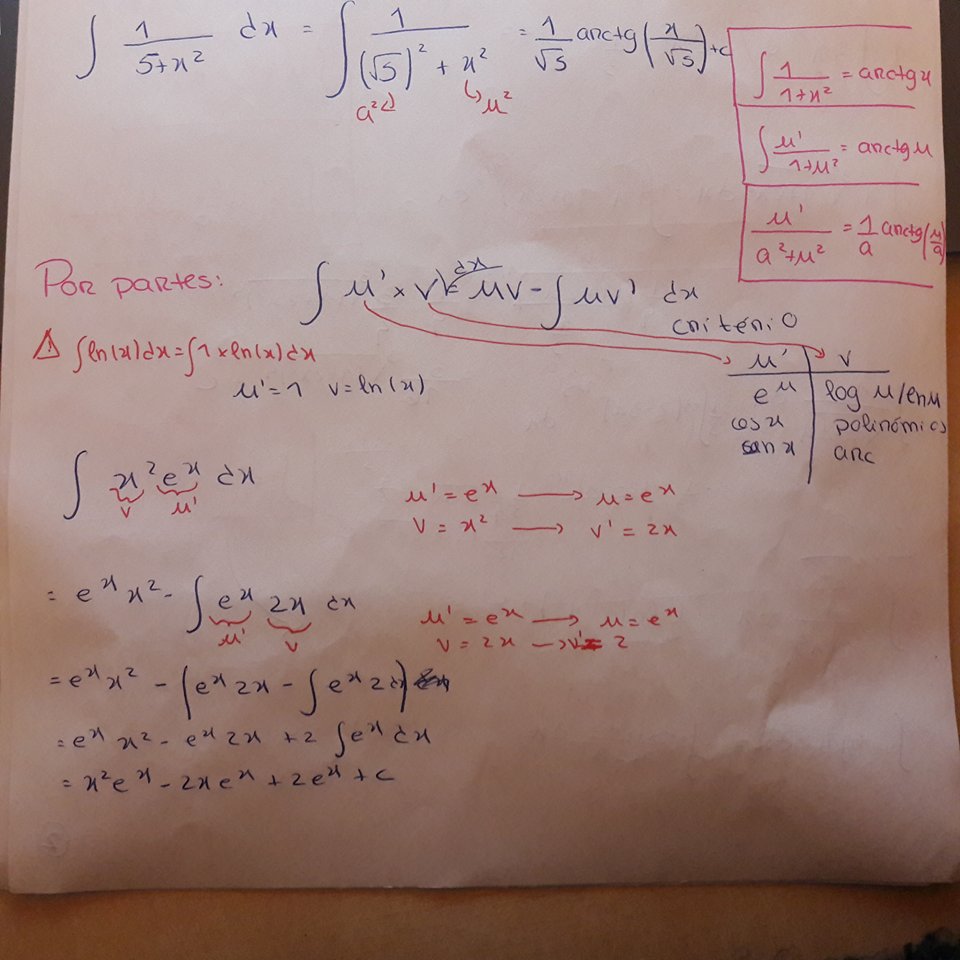 ∫ 1/(5+x²) dx = ∫ 1/((√5)² + x²) = 1/√5 arctg(x/√5)+c
a² u²
∫ 1/(1+x²) = arctg x
∫ u'/(1+u²) = arctg u
u'/(a²+u²) = 1/a arctg(u/a)
Por partes: ∫ u' × v dx = uv - ∫ uv' dx
critério
⚠ ∫ ln(x)dx = ∫ 1 × ln(x) dx
u' = 1 v = ln(x)
u' | v
e^u | log u/ln u
cos x | polinómios
sen x | arc
∫ x² e^x dx
v u'
u' = e^x → u = e^x
v = x² → v' = 2x
= e^x x² - ∫ e^x 2x dx
u' v
u' = e^x → u = e^x
v = 2x → v' = 2
= e^x x² - (e^x 2x - ∫ e^x 2 dx)
= e^x x² - e^x 2x + 2 ∫ e^x dx
= x² e^x - 2x e^x + 2e^x + c